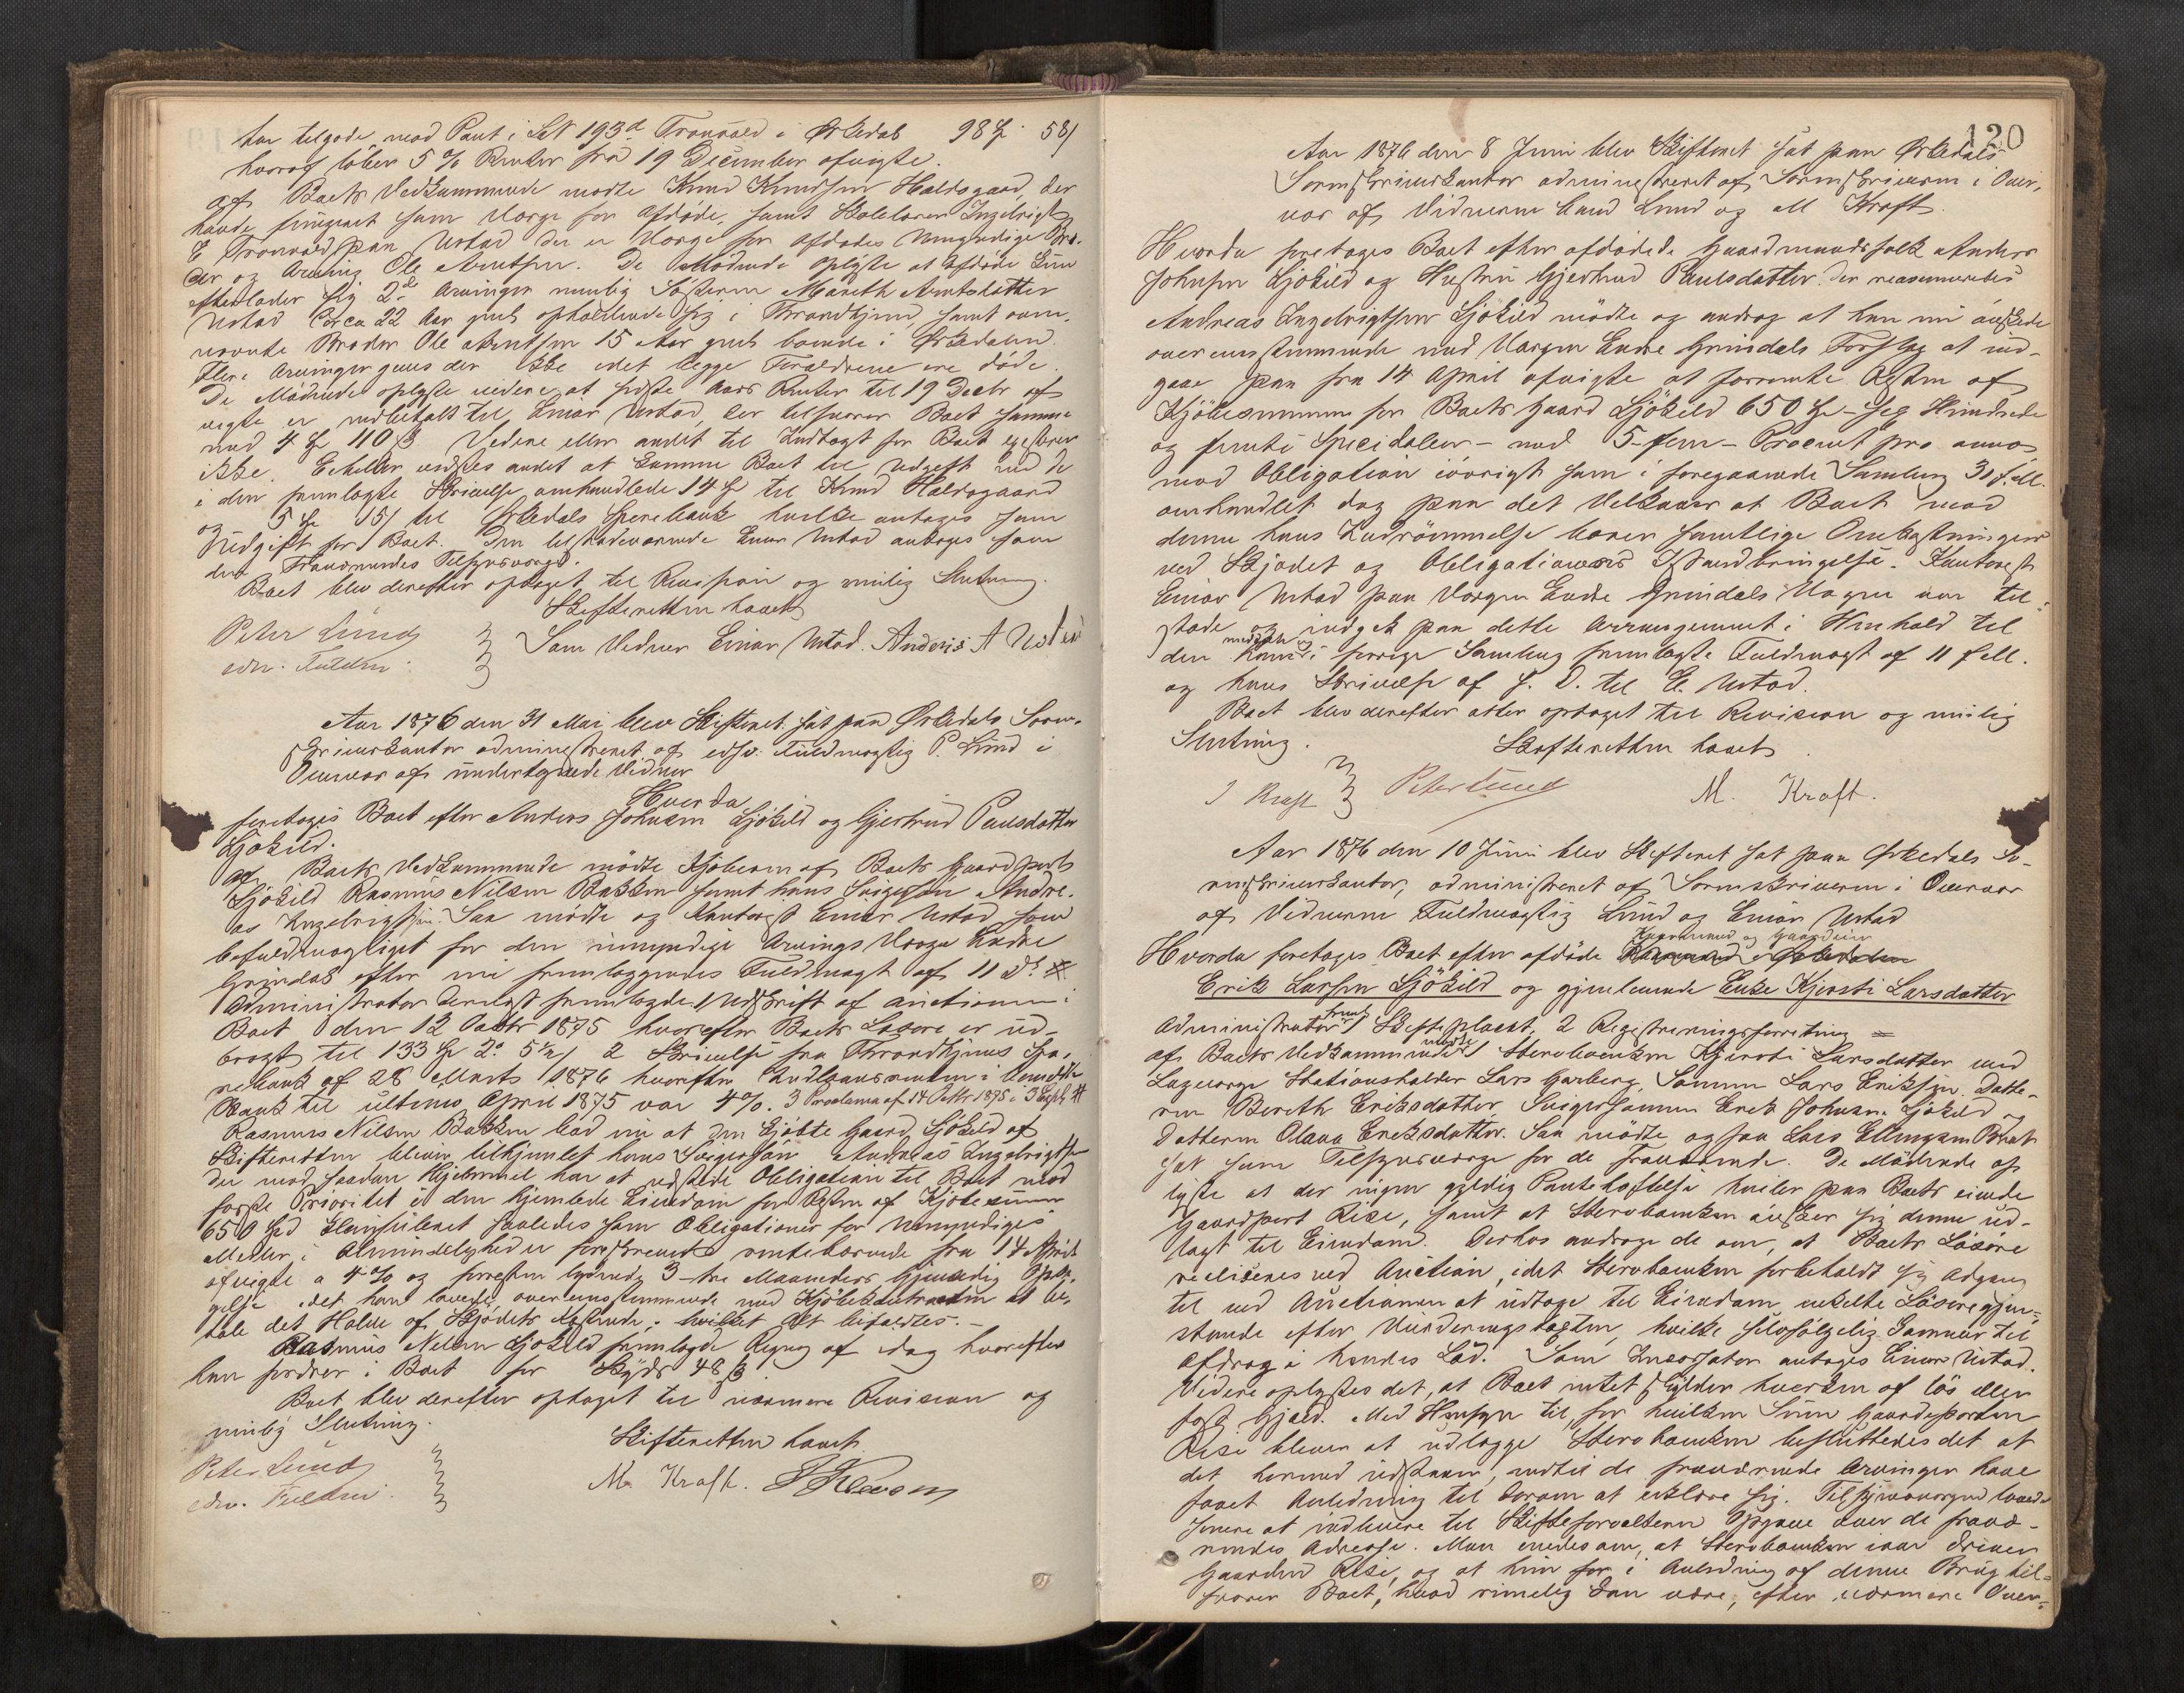 har tilgode mod Pant i LN 193d Tronvold i Ørkedal 98 58
hvoraf löber 5 % Renter fra 19 December afvigte.
af Boets Vedkommende mødte Knud Knudsen Holdsgaard, der
havde fungeret som Værge for Afdøde, samt Skolelærer Ingebrigt
E Tronvold paa Ustad der er Værge for afdødes umyndige Bro-
der og Arving Ole Arntsen. De Mödende oplyste at Afdøde kun
efterlader sig 2de Arvinger nemlig Søsteren Marith Arntsdatter
Ustad Circa 22 Aar gml opholdende sig i Throndhjem, samt oven-
nævnte Broder Ole Arntsen 15 Aar gml boende i Ørkedalen.
Flere Arvinger gives der ikke idet begge Forældrene ere døde.
De Mödende oplyste videre, at sidste Aars Renter til 19 Decbr af-
vigte er udbetalt til Einar Ustad, der tilsvarer Boet samme
med 4 110 ß Videre eller andet til Indtægt for Boet existerer
ikke. Ei heller vidstes andet at komme Boet til Udgift end de
i den fremlagte Skrivelse omhandlede 14 til Knud Holdsgaard
og 5 15/ til Ørkedals Sparebank hvilke antages som
Udgift for Boet. Den tilstedeværende Einar Ustad antages som
den Fraværendes Tilsynsværge.
Boet blev derefter optaget til Revision og mulig Slutning.
Skifteretten hævet
Peter Lund
edsv. Fuldm.
Som Vidner Einar Ustad. Anders A Ustad
Aar 1876 den 31 Mai blev Skifteret sat paa Ørkedals Soren-
skriverkontor administreret af edsv. Fuldmægtig P. Lund i
Overvær af undertegnede Vidner
Hvorda
foretoges Boet efter Anders Johnsen Ljøkild og Gjertrud Paulsdatter
Ljøkild.
af Boets Vedkommende mödte Kjøberen af Boets Gaardpart
Ljøkild Rasmus Nilsen Bakken samt hans Svigersøn Andre-
as Ingebrigtsen. Saa mødte og Kontorist Einar Ustad som
befuldmægtiget for den umyndige Arvings Værge Endre
Grindal efter nu fremlæggendes Fuldmagt af 11 Ds.
Administrator dernæst fremlagde 1 Udskrift af auctionen i
Boet den 12 Octbr 1875 hvorefter Boets Løsøre er ud-
bragt til 133 2 5½/ 2 Skrivelse fra Throndhjems Spa-
rebank af 28 Marts 1876 hvorefter Indlaansrenten i bemeldte
Bank til ultimo April 1875 var 4 %. 3 Proclama af 14 Octbr 1875 i 3
Rasmus Nilsen Bakken bad nu at den kjøbte Gaard Ljøkild af
Skifteretten bliver tilhjemlet hans Svigersøn Andreas Ingebrigtsen
der mod saadan Hjemmel har at udstede Obligation til Boet mod
første Prioritet i den hjemlede Eiendom for Resten af Kjøbesummen
650 Spd klausuleret saaledes som Obligationer for Umyndiges
Midler i Almindelighed er foreskrevet rentebærende fra 14 April
afvigte a 4 % og forresten lydende 3 - tre Maaneders gjensidig Opsi-
gelse idet han lovede overensstemmende med Kjøbekontrakten at be-
tale det Halve af Skjødets Kostende. - hvilket Alt bifaldtes. -
Rasmus Nilsen Ljøkild fremlagde Regning af idag hvorefter
han fordrer i Boet for Skyds 48 ß.
Boet blev derefter optaget til nærmere Revision og
mulig Slutning.
Skifteretten hævet
Peter Lund
edsv. Fuldm.
M. Kraft.
120
Aar 1876 den 8 Juni blev Skifteret sat paa Ørkedals
Sorenskriverkontor administreret af Sorenskriveren i Over-
vær af Vidnerne Lund og M Kraft.
Hvorda foretoges Boet efter afdødede Gaardmandsfolk Anders
Johnsen Ljøkild og Hustru Gjertrud Paulsdatter.
Andreas Ingebrigtsen Ljøkild mödte og androg at han nu önskede
overensstemmende med Værgen Endre Grindals Forslag at ind-
gaae paa fra 14 April afvigte at forrente Resten af
Kjöbesummen for Boets Gaard Ljøkild 650 - sex Hundrede
og femti Speciedaler - med 5 - fem - Procent pro anno
mod Obligation iøvrigt som i foregaaende Samling 31 f. M.
omhandlet dog paa det Velkaar at Boet mod
denne hans Indrømmelse bærer samtlige Omkostninger
ved Skjødet og Obligationens Istandbringelse. Kontorist
Einar Ustad paa Værgen Endre Grindals Vegne var til-
stede og indgik paa dette Arrangement i Henhold til
den i forrige Samling fremlagte Fuldmagt af 11 f. M.
og hans Skrivelse af s. D. til E. Ustad.
Boet blev derefter atter optaget til Revision og mulig
Slutning.
Skifteretten hævet.
J Kraft
Peter Lund
M. Kraft.
Aar 1876 den 10 Juni blev Skifteret sat paa Ørkedals So-
renskriverkontor, administreret af Sorenskriveren i Overvær
af Vidnerne Fuldmægtig Lund og Einar Ustad
Hvorda foretoges Boet efter afdøde og Gaardeier
Erik Larsen Ljökild og gjenlevende Enke Kjersti Larsdatter
Administrator freml 1 Skifteplacat, 2 Registreringsforretning =
af Boets Vedkommende mødte Stervboenken Kjersti Larsdatter med
Laugværge Stationsholder Lars Garberg, Sønnen Lars Eriksen. Datte-
ren Berith Eriksdatter, Svigersønnen Erik Johnsen Ljökild og
Datteren Olava Eriksdatter. Saa mödte ogsaa Lars Ellingsen
sat som Tilsynsværge for de fraværende. De Mödende op-
lyste at der ingen gyldig Pantehæftelse hviler paa Boets eiende
Gaardpart Rise, samt at Stervboenken önsker sig denne ud-
lagt til Eiendom. Derhos androge de om, at Boets Løsöre
realiseres ved Auction, idet Stervboenken forbeholdt sig Adgang
til ved Auctionen at udtage til Eiendom enkelte Lösöregjen-
stande efter Vurderingstaxten, hvilke selvfölgelig kommer til
Afdrag i hendes Lod. Som Incassator antages Einar Ustad.
Videre oplystes det, at Boet intet skylder hverken af løs eller
fast Gjæld. Med Hensyn til for hvilken Sum Gaardeparten
Rise bliver at udlægge Stervboenken besluttedes det at
det hermed udstaaer, indtil de fraværende Arvinger have
faaet Anledning til derom at erklære sig. Tilsynsværgen loved
snarest at indlevere til Skifteforvalteren Opgave over de fravæ-
rendes Adresse. Man enedes om, at Stervboenken iaar driver
Gaarden Rise, og at hun for i Anledning af denne Brug til-
svarer Boet, hvad rimelig kan være, efter nærmere Over-